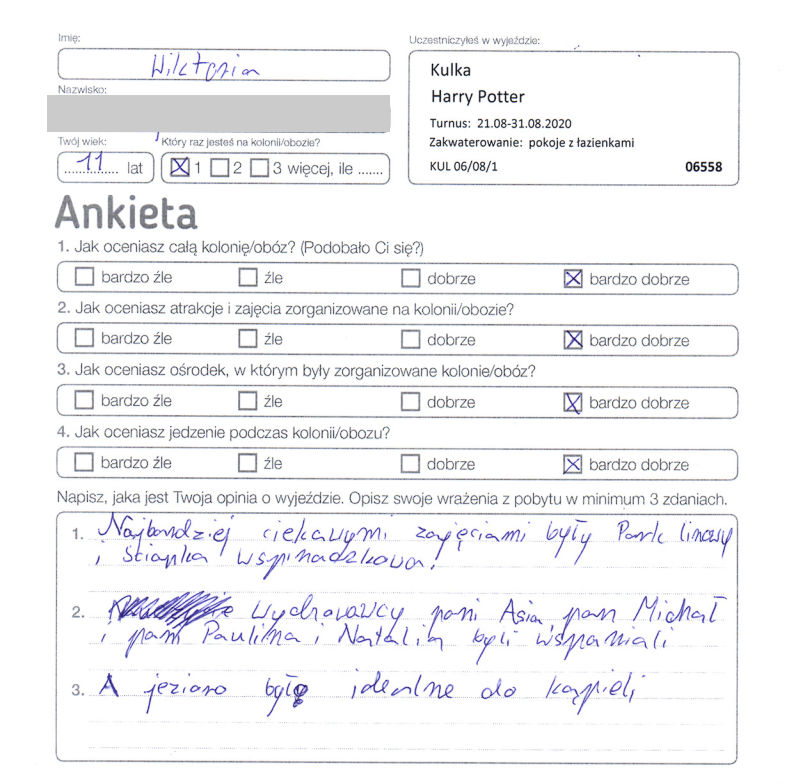 Imię:
Wiktoria
Nazwisko:
Twój wiek:
11 lat
Który raz jesteś na kolonii/obozie?
1 2 3 więcej, ile .......
Uczestniczyłeś w wyjeździe:
Kulka
Harry Potter
Turnus: 21.08-31.08.2020
Zakwaterowanie: pokoje z łazienkami
KUL 06/08/1 06558
Ankieta
1. Jak oceniasz całą kolonię/obóz? (Podobało Ci się?)
bardzo źle źle dobrze bardzo dobrze
2. Jak oceniasz atrakcje i zajęcia zorganizowane na kolonii/obozie?
bardzo źle źle dobrze bardzo dobrze
3. Jak oceniasz ośrodek, w którym były zorganizowane kolonie/obóz?
bardzo źle źle dobrze bardzo dobrze
4. Jak oceniasz jedzenie podczas kolonii/obozu?
bardzo źle źle dobrze bardzo dobrze
Napisz, jaka jest Twoja opinia o wyjeździe. Opisz swoje wrażenia z pobytu w minimum 3 zdaniach.
1. Najbardziej ciekawymi zajęciami były Park linowy
i ścianka wspinaczkowa.
2. Wychowawcy pani Asia, pan Michał
i pani Paulina i Natalia byli wspaniali
3. A jezioro było idealne do kąpieli